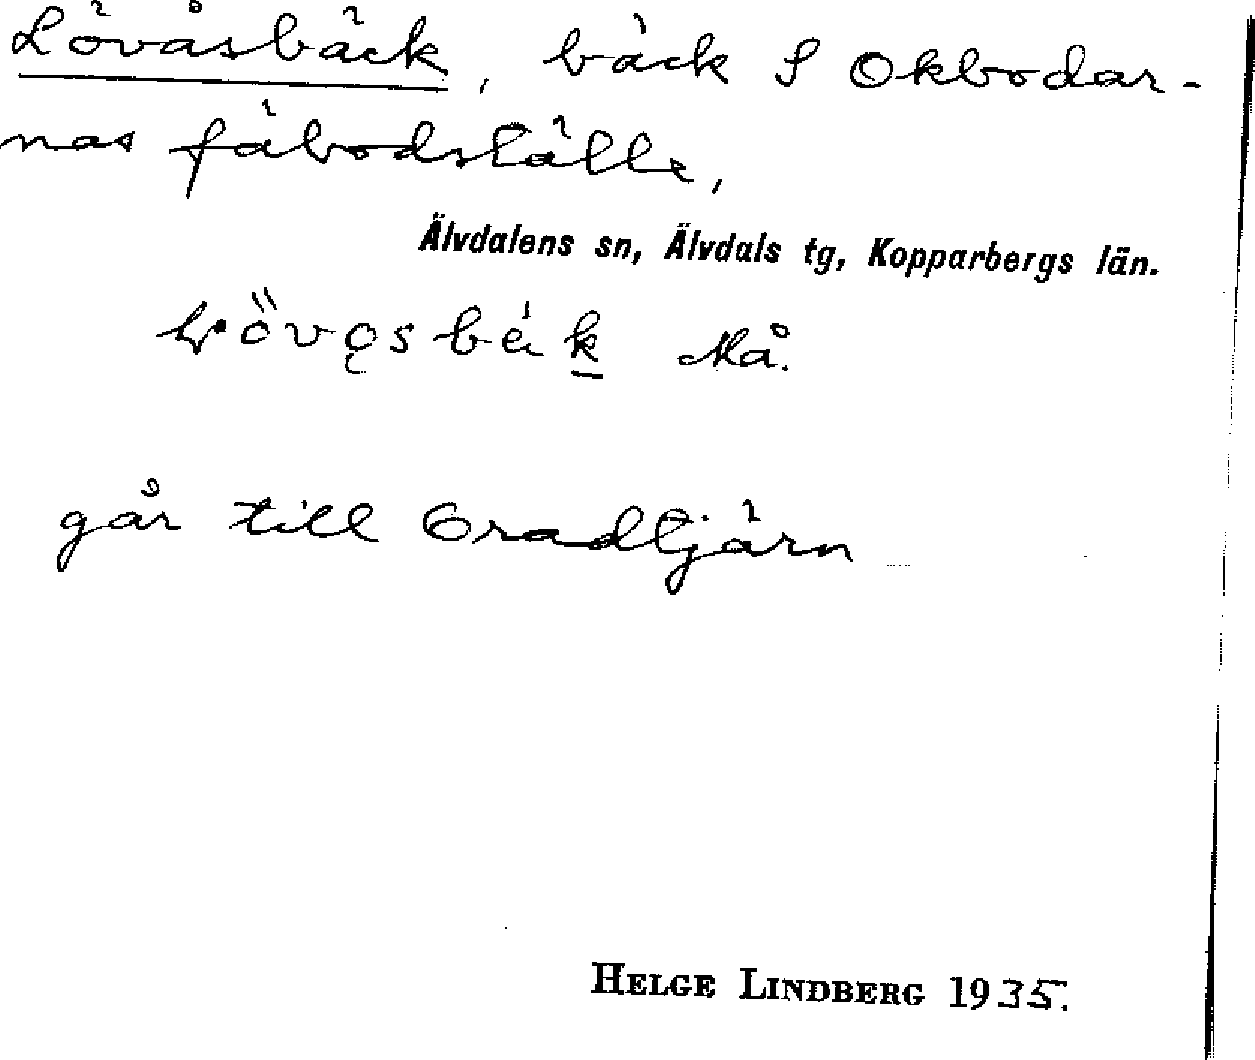 Lövåsbäck, bäck S Okbodar-
nas fäbodställe,
Älvdalens sn, Älvdals tg, Kopparbergs län.
Må.
går till Oradtjärn
HELGE LINDBERG 1935.